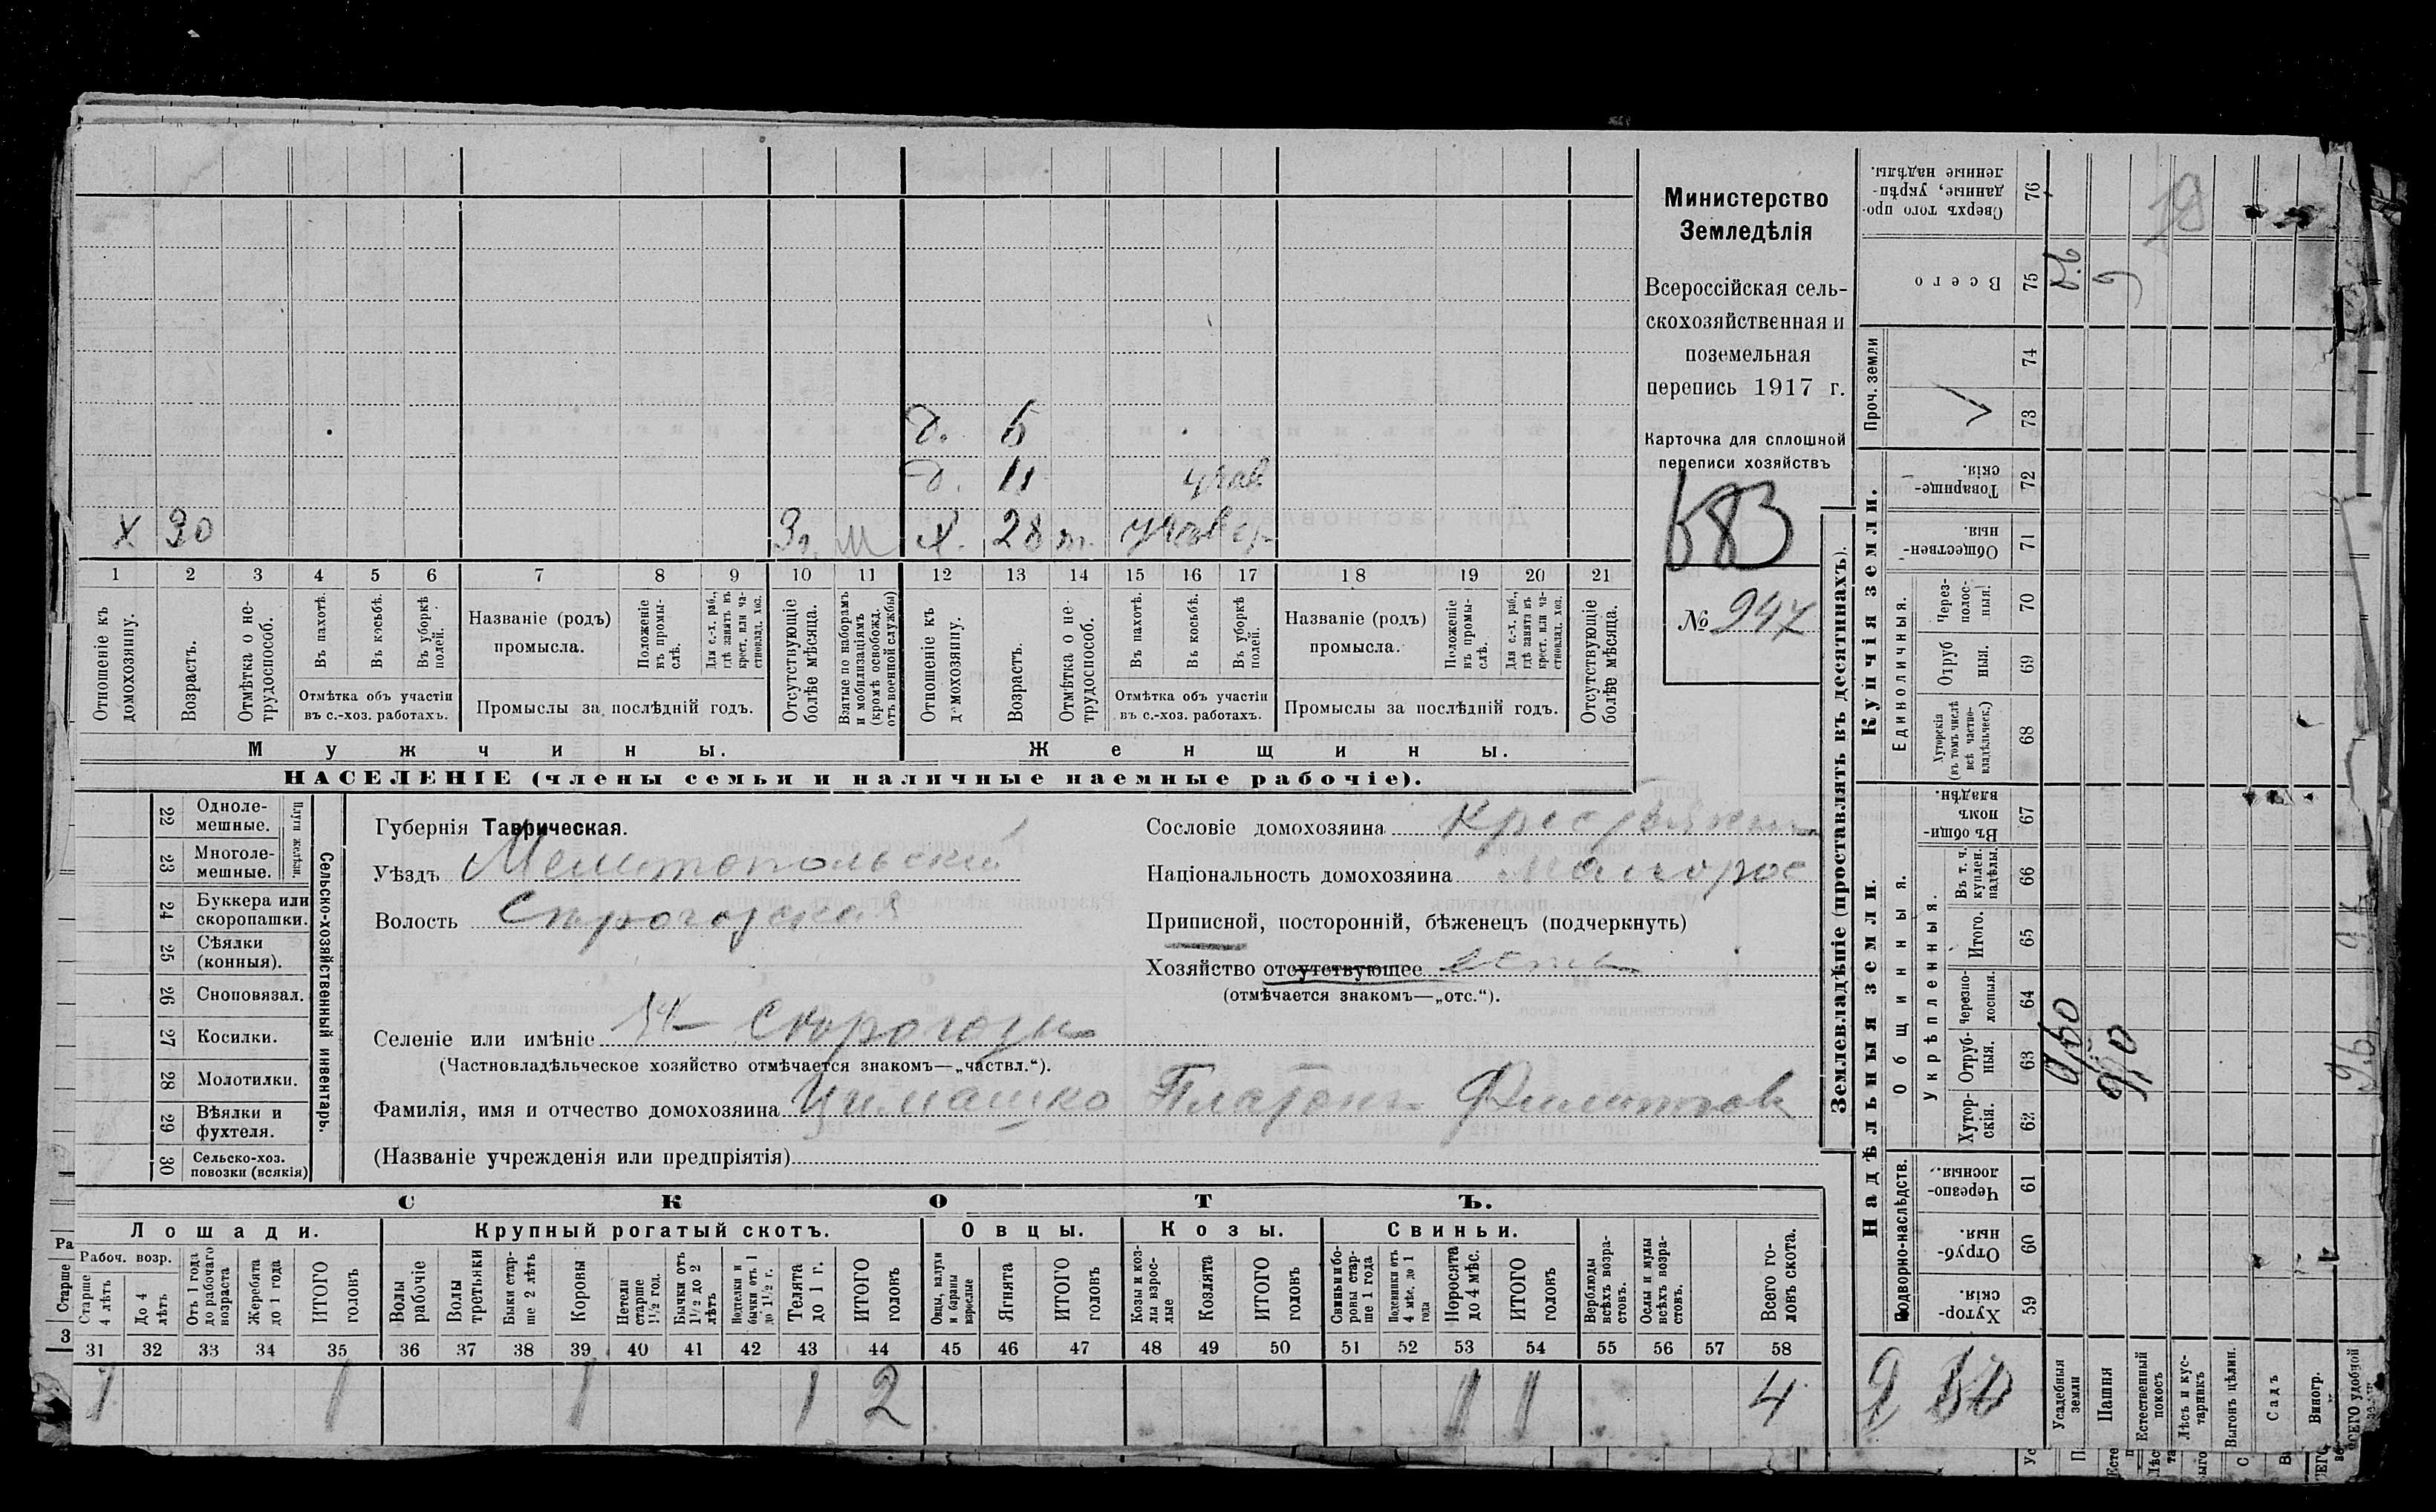 д. 5
д. 11 убав
х 30 Зг. м х. 28 т. убав ср
1 2 3 4 5 6 7 8 9 10 11 12 13 14 15 16 17 18 19 20 21
Отношеніе къ домохозяину.
Возрастъ.
Отмѣтка о не-трудоспособ.
Въ пахотѣ.
Въ косьбѣ.
Въ уборкѣ полей.
Отмѣтка объ участіи
въ с.-хоз. работахъ.
Названіе (родъ)
промысла.
Положеніе въ промы-слѣ.
Для с.-х. раб., гдѣ занятъ въ крест. или ча-стновлад. хоз.
Промыслы за послѣдній годъ.
Отсутствующіе болѣе мѣсяца.
Взятые по наборамъ и мобилизаціямъ (кромѣ освобожд. отъ военной службы)
Отношеніе къ домохозяину.
Возрастъ.
Отмѣтка о не-трудоспособ.
Въ пахотѣ.
Въ косьбѣ.
Въ уборкѣ полей.
Отмѣтка объ участіи
въ с.-хоз. работахъ.
Названіе (родъ)
промысла.
Положеніе въ промы-слѣ.
Для с.-х. раб., гдѣ занята въ крест. или ча-стновлад. хоз.
Промыслы за послѣдній годъ.
Отсутствующіе болѣе мѣсяца.
Мужчины.
Женщины.
НАСЕЛЕНІЕ (члены семьи и наличные наемные рабочіе).
Министерство
Земледѣлія
Всероссійская сель-
скохозяйственная и
поземельная
перепись 1917 г.
Карточка для сплошной
переписи хозяйствъ
683
№ 947
22 Одноле-мешные.
23 Многоле-мешные.
Плуги желѣзн.
24 Буккера или скоропашки.
25 Сѣялки (конныя).
26 Сноповязал.
27 Косилки.
28 Молотилки.
29 Вѣялки и фухтеля.
30 Сельско-хоз. повозки (всякія)
Сельско-хозяйственный инвентарь.
Губернія Таврическая.
Уѣздъ Мелитопольскій
Волость Сѣрогозская
Селеніе или имѣніе Сѣрогозы
(Частновладѣльческое хозяйство отмѣчается знакомъ—„частвл.“).
Фамилія, имя и отчество домохозяина Цимашко Платонъ Филиппов
(Названіе учрежденія или предпріятія)
Сословіе домохозяина крестьянин
Національность домохозяина малорос
Приписной, посторонній, бѣженецъ (подчеркнуть)
Хозяйство отсутствующее есть
(отмѣчается знакомъ—„отс.“).
СКОТЪ.
Лошади.
Крупный рогатый скотъ.
Овцы.
Козы.
Свиньи.
Рабоч. возр.
Старше 4 лѣтъ
До 4 лѣтъ
Отъ 1 года до рабочаго возраста
Жеребята до 1 года
ИТОГО головъ
Волы рабочіе
Волы третьяки
Быки стар-ше 2 лѣтъ
Коровы
Нетели старше 1½ год.
Бычки отъ 1½ до 2 лѣтъ
Подтелки и бычки отъ 1 до 1½ г.
Телята до 1 г.
ИТОГО головъ
Овцы, валухи и бараны взрослые
Ягнята
ИТОГО головъ
Козы и коз-лы взрос-лые
Козлята
ИТОГО головъ
Свиньи и бо-ровы стар-ше 1 года
Подсвинки отъ 4 мѣс. до 1 года
Поросята до 4 мѣс.
ИТОГО головъ
Верблюды всѣхъ возра-стовъ.
Ослы и мулы всѣхъ возра-стовъ.
Всего го-ловъ скота.
31 32 33 34 35 36 37 38 39 40 41 42 43 44 45 46 47 48 49 50 51 52 53 54 55 56 57 58
1 1 1 1 2 1 1 4
Землевладѣніе (проставлять въ десятинахъ).
Купчія земли.
Надѣльныя земли.
Проч. земли
Единоличныя.
Общинныя.
Укрѣпленныя.
Подворно-наслѣдств.
76 Сверхъ того про-данные, укрѣп-ленные надѣлы.
75 Всего
74
73
72 Товарище-скія.
71 Обществен-ныя.
70 Через-полос-ныя.
69 Отруб ныя.
68 Хуторскія (въ томъ числѣ всѣ частно-владѣльческ.)
67 Въ общи-номъ владѣн.
66 Въ т. ч. куплен. надѣлы.
65 Итого.
64 Черезпо-лосныя.
63 Отруб-ныя.
62 Хутор-скія.
61 Черезпо-лосныя.
60 Отруб-ныя.
59 Хутор-скія.
Усадебныя земли
Пашня
Естественный покосъ
Лѣсъ и кус-тарникъ
Выгонъ цѣлин.
Садъ
Виногр.
ВСЕГО удобной